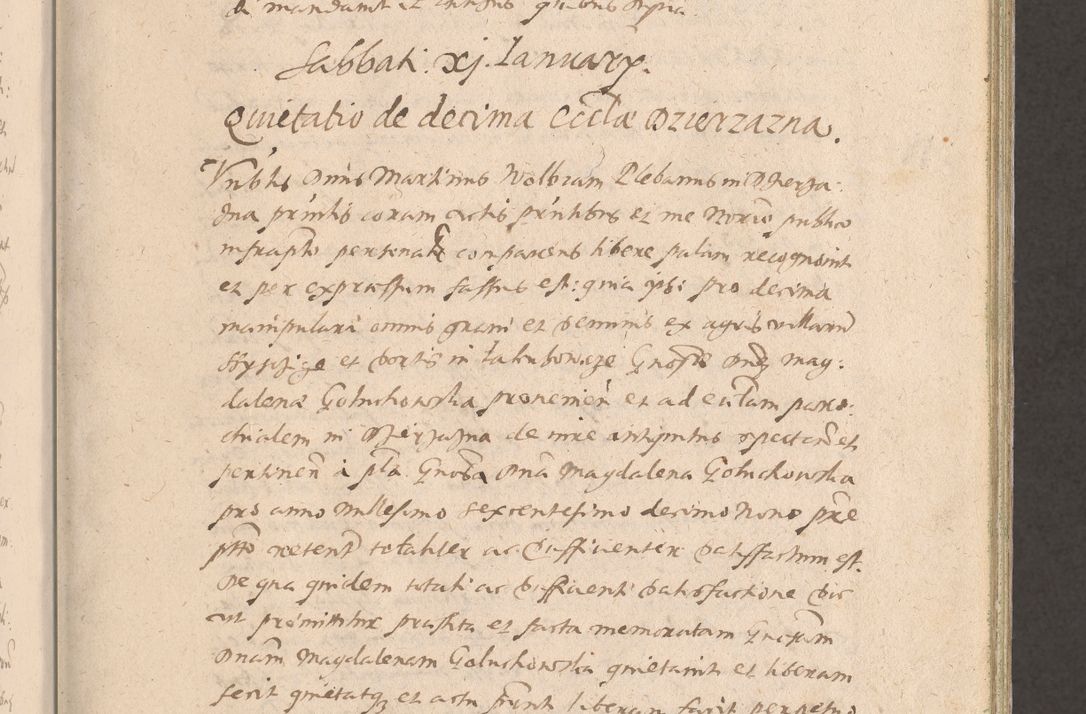 di mandavit et  quibus supra
Sabbati. xj. January.
Quietatio de decima Ecclae Dzierzazna.
Vnblis Dnus Martinus Wolbram Plebanus in Dzierza:
zna prntis coram Actis prntibus et me Notrio publico
infrapto personalr comparens libere palam recognovit
et per expressum fassus est: quia ipsi pro decima
manipulari omnis grani et seminis ex agris villarum
et sortis in Gnosae Dnae Mag:
dalenae Goluchowska provenien et ad ecclam paro:
chialem in Dzierzazna de iure antiquitus spectan et
pertinen à pta Gnosa Dna Magdalena Goluchowska
pro anno Millesimo sexcentesimo decimo Nono prae
ptto retent totaliter ac sufficienter satisfactum est.
De qua quidem totali ac sufficienti satisfactione sic
ut praemittitur praestita et facta memoratam Gnosam
Dnam Magdalenam Goluchowska quietavit et liberam
fecit quietatq et actu prnti liberam facit perpetuo